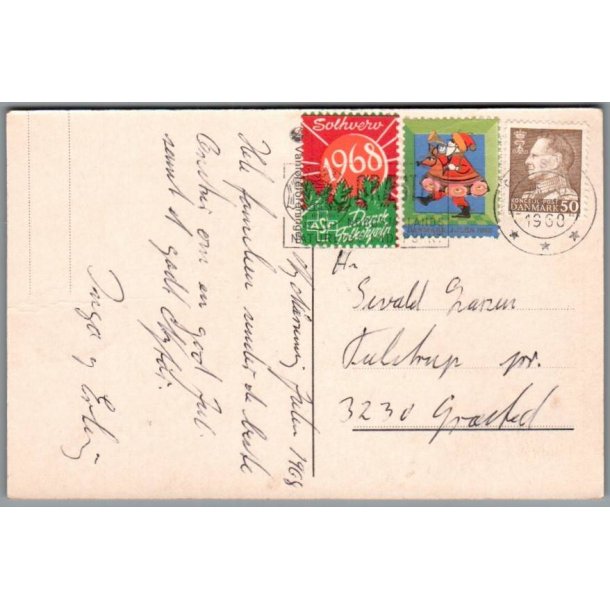 Solhverv
1968
ASF
Dansk
Folkehjælp
KONGELIG POST
DANMARK 50
1968
Hr.
Sevald Larsen
Tulstrup pr.
3230 Græsted
Julen 1968
Hele familien sendes de bedste
ønsker om en god Jul
samt et godt Nytår.
Inga og Erling